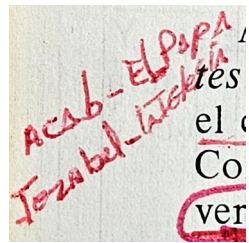 Acab - El Papa
Jezabel - la Iglesia
tes
el c
Co
ver